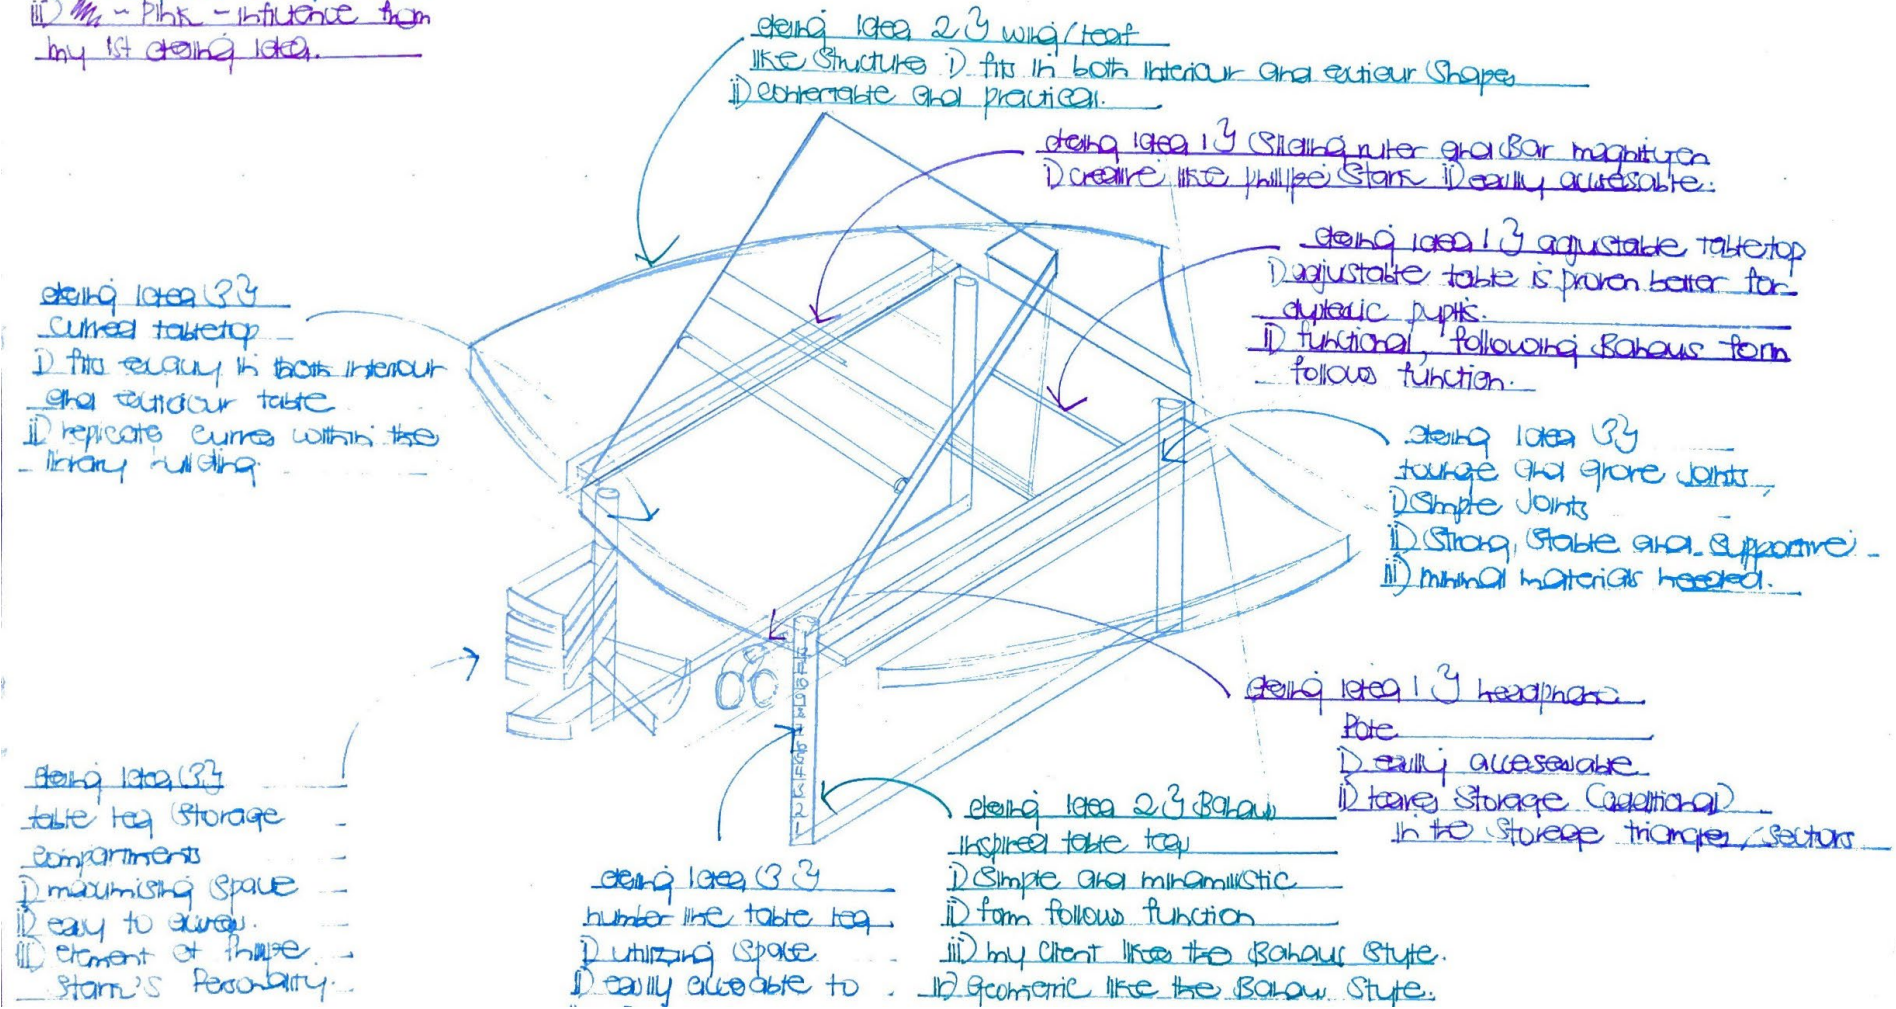 iii) - Pink - influence from
my 1st desing idea.
desing idea 2} wing/leaf
like structure i) fits in both interiour and extiour shape
ii) confertable and practical.
desing idea 1} Sliding ruler and Bar magnityen
i) creative like phillipe Stark ii) easily accesable.
desing idea 1} adjustable tabletop
i) adjustable table is proven better for
dyslexic pupils.
ii) functional, following Bahaus form
follows function.
desing idea 3}
curved tabletop
i) fits exaclly in both interiour
and extiour table
ii) replicate curves within the
library building.
desing idea 3}
tounge and grove joints
i) Simple Joints
ii) Strong, Stable and supportive
iii) minimal materials needed.
desing idea 1} headphone
Pole
i) easily accesesable
ii) leaves storage (additional)
in the storage triangles/sectors
desing idea 3}
table leg storage
compartments
i) maximising space
ii) easy to
iii) element of Philipe
Stark's Personality.
desing idea 3}
number line table leg
i) utilizing space
ii) easily accesable to
desing idea 2} Bahaus
inspired table leg
i) Simple and minamilistic
ii) form follows function
iii) my client likes the Bahaus Style.
iv) geometric like the Bahaus Style.